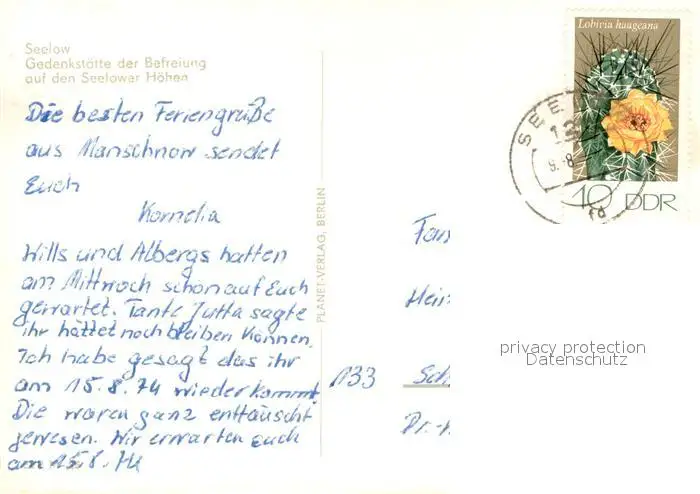 Seelow
Gedenkstötte der Befreiung
auf den Seelower Höhen
Die besten Feriengrüße
aus Manschnow sendet
Euch
Kornelia
Wills und Albergs hatten
am Mittwoch schon auf Euch
gewartet. Tante Jutta sagte
ihr hättet noch bleiben können.
Ich habe gesagt das ihr
am 15.8.74 wiederkommt.
Die waren ganz enttäuscht
gewesen. Wir erwarten euch
am 15.8.74
PLANET-VERLAG, BERLIN
Lobivia haageana
10 DDR
SEE
12
9.-8
Fam
Hein
133 Sch
Dr.-
privacy protection
Datenschutz